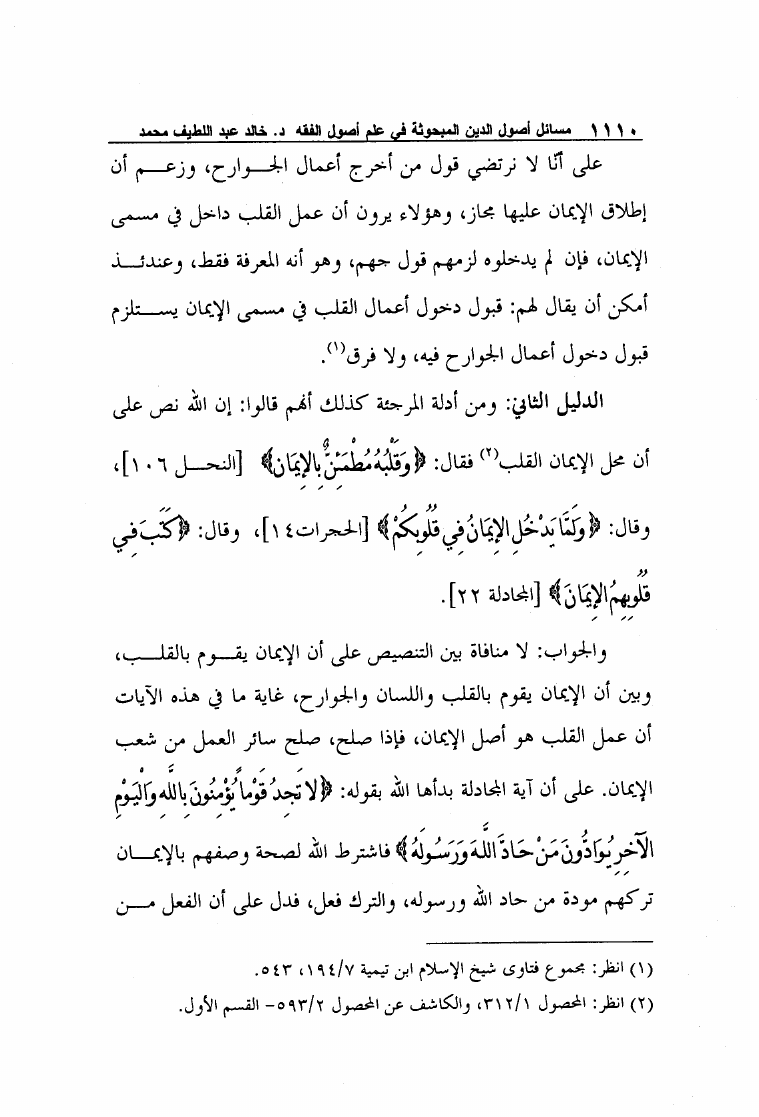 ١١١٠ مسائل أصول الدين المبحوثة في علم أصول الفقه د. خالد عبد اللطيف محمد
على أنّا لا نرتضي قول من أخرج أعمال الجوارح، وزعم أن
إطلاق الإيمان عليها مجاز، وهؤلاء يرون أن عمل القلب داخل في مسمى
الإيمان، فإن لم يدخلوه لزمهم قول جهم، وهو أنه المعرفة فقط، وعندئذ
أمكن أن يقال لهم: قبول دخول أعمال القلب في مسمى الإيمان يستلزم
قبول دخول أعمال الجوارح فيه، ولا فرق(١).
الدليل الثاني: ومن أدلة المرجئة كذلك أنهم قالوا: إن الله نص على
أن محل الإيمان القلب(٢) فقال: ﴿وَقَلْبُهُ مُطْمَئِنٌّ بِالإِيمَانِ﴾ [النحل ١٠٦]،
وقال: ﴿وَلَمَّا يَدْخُلِ الإِيمَانُ فِي قُلُوبِكُمْ﴾ [الحجرات١٤]، وقال: ﴿كَتَبَ فِي
قُلُوبِهِمُ الإِيمَانَ﴾ [المجادلة ٢٢].
والجواب: لا منافاة بين التنصيص على أن الإيمان يقوم بالقلب،
وبين أن الإيمان يقوم بالقلب واللسان والجوارح، غاية ما في هذه الآيات
أن عمل القلب هو أصل الإيمان، فإذا صلح، صلح سائر العمل من شعب
الإيمان. على أن آية المجادلة بدأها الله بقوله: ﴿لا تَجِدُ قَوْماً يُؤْمِنُونَ بِاللَّهِ وَالْيَوْمِ
الآخِرِ يُوَادُّونَ مَنْ حَادَّ اللَّهَ وَرَسُولَهُ﴾ فاشترط الله لصحة وصفهم بالإيمان
تركهم مودة من حاد الله ورسوله، والترك فعل، فدل على أن الفعل من
(١) انظر: مجموع فتاوى شيخ الإسلام ابن تيمية ١٩٤/٧، ٥٤٣.
(٢) انظر: المحصول ٣١٢/١، والكاشف عن المحصول ٥٩٣/٢- القسم الأول.